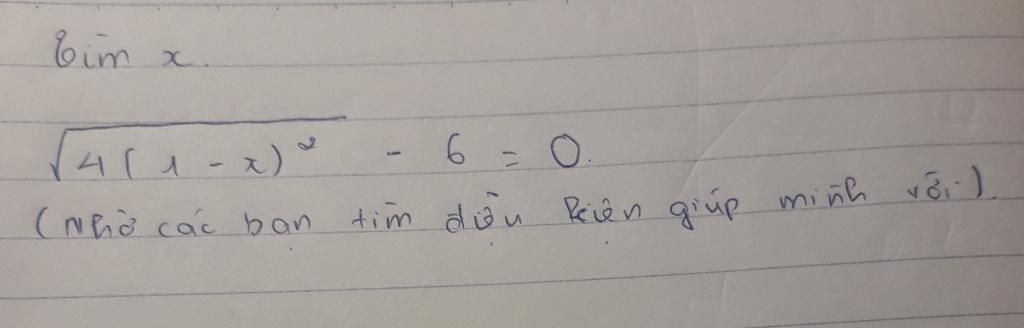 Tìm x.
√4(1-x)² - 6 = 0.
(Nhờ các bạn tìm điều kiện giúp mình với.)